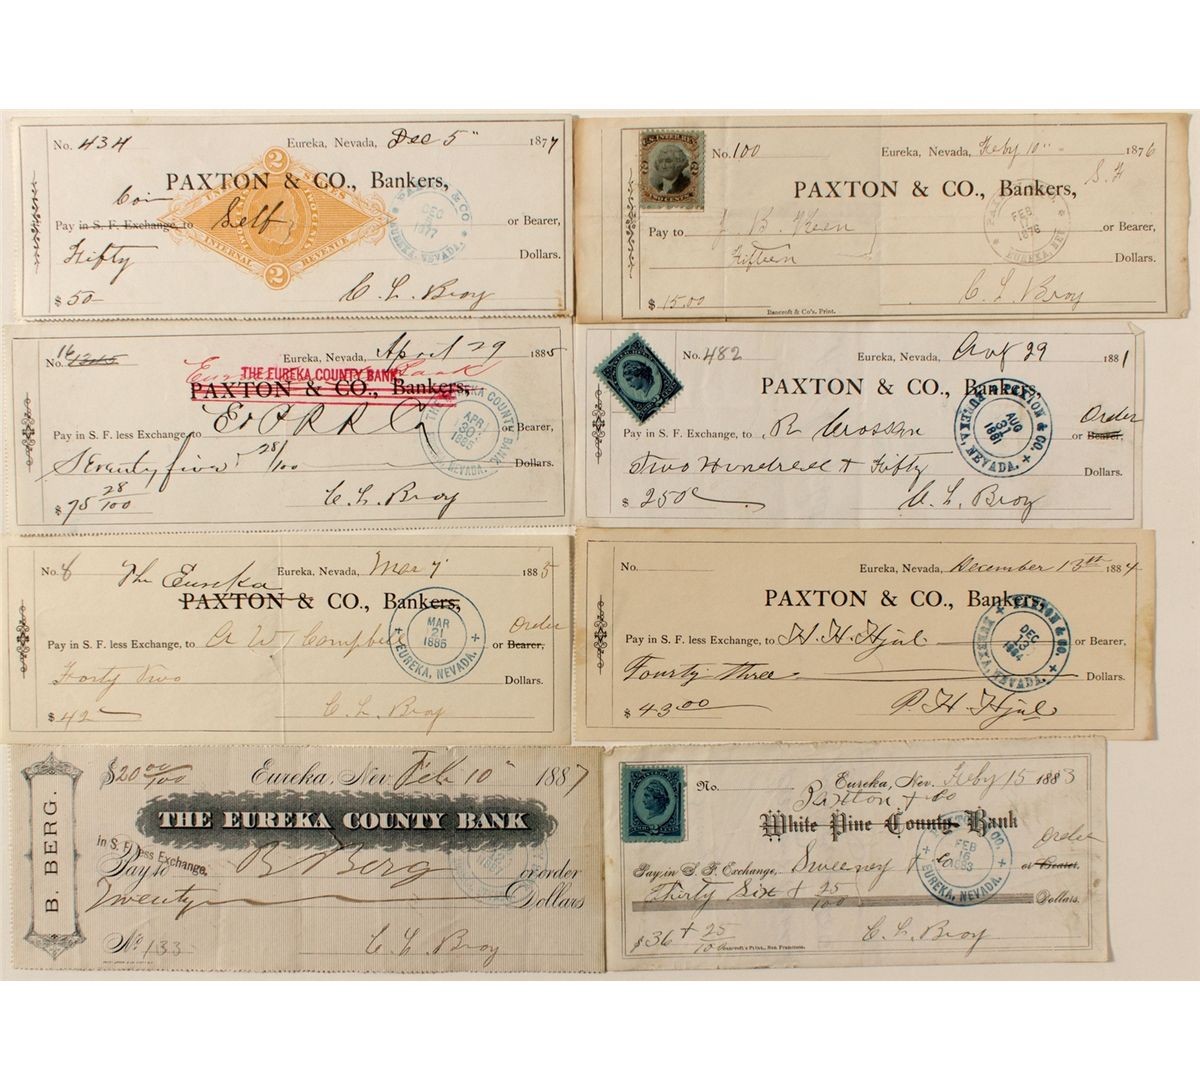 No. 434 Eureka, Nevada, Dec 5" 1877
PAXTON & CO., Bankers,
Coin
Pay in S. F. Exchange, to Self or Bearer,
Fifty Dollars.
$ 50 C. L. Broy
2
UNITED STATES
INTERNAL REVENUE
2
PAXTON & CO.
DEC
1877
EUREKA, NEVADA.
U.S. INTER. REV.
TWO CENTS
No. 100 Eureka, Nevada, Feby 10" 1876
PAXTON & CO., Bankers, S. F
Pay to J. B. Keen or Bearer,
Fifteen Dollars.
$ 15.00 C. L. Broy
Bancroft & Co's. Print.
PAXTON & CO.
FEB
1876
EUREKA, NEV.
No. 16 1365 Eureka, Nevada, April 29 1885
THE EUREKA COUNTY BANK
PAXTON & CO., Bankers,
Pay in S. F. less Exchange, to E & P R R Co or Bearer,
Seventy five 28/100 Dollars.
$ 75 28/100 C. L. Broy
THE EUREKA COUNTY BANK
APR
30
1885
NEVADA.
No. 482 Eureka, Nevada, Aug 29 1881
PAXTON & CO., Bankers,
Order
Pay in S. F. less Exchange, to R Crossen or Bearer,
Two Hundred & Fifty Dollars.
$ 250 C. L. Broy
PAXTON & CO.
AUG
31
1881
EUREKA, NEVADA.
No. 8 Eureka, Nevada, Mar 7 1885
The Eureka
PAXTON & CO., Bankers,
Order
Pay in S. F. less Exchange, to A W Campbell or Bearer,
Forty Two Dollars.
$ 42 C. L. Broy
MAR
21
1885
EUREKA, NEVADA.
No. Eureka, Nevada, December 13th 1884
PAXTON & CO., Bankers,
Pay in S. F. less Exchange, to H. H. Hjul or Bearer,
Fourty three Dollars.
$ 43.00 P. H. Hjul
PAXTON & CO.
DEC
13
1884
EUREKA, NEVADA.
B. BERG.
$20 00/100 Eureka, Nev. Feb 10" 1887
THE EUREKA COUNTY BANK
in S. F. less Exchange,
Pay to B Berg or order
Twenty Dollars
No. 133 C. L. Broy
No. Eureka, Nev. Feby 15 1883
Paxton & Co
White Pine County Bank
Order
Pay in S. F. Exchange, Sweeney & Co or Bearer.
Thirty Six & 25/100 Dollars.
$36 + 25/10 C. L. Broy
Bancroft's Print., San Francisco.
FEB
16
1883
EUREKA, NEVADA.